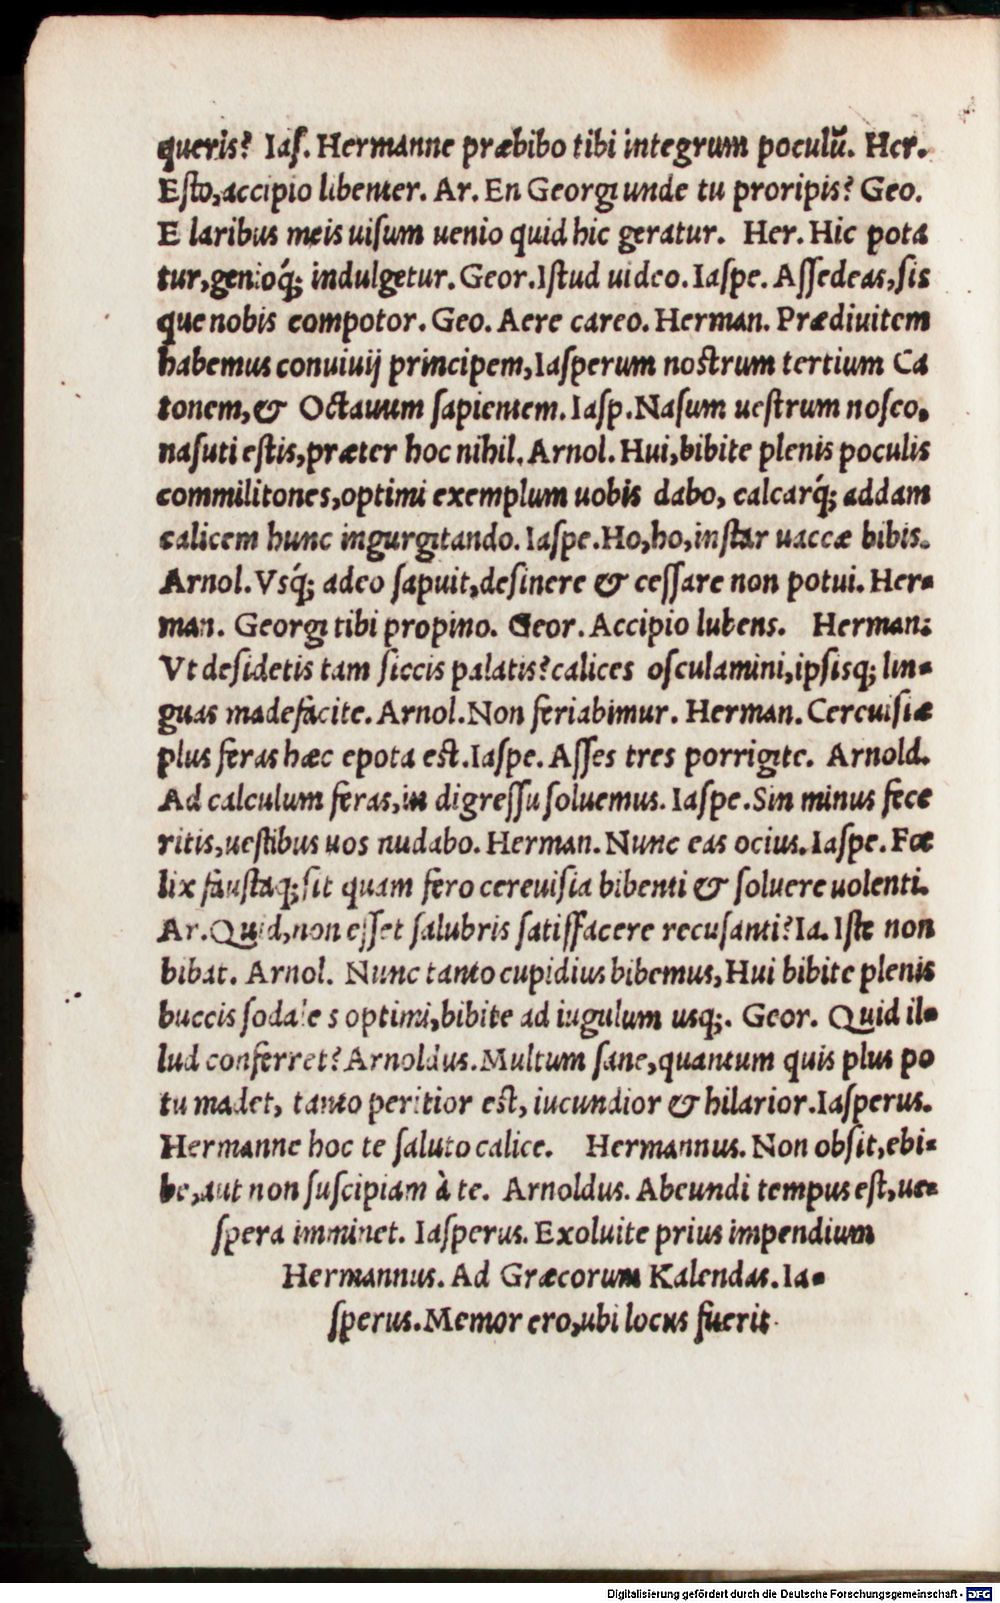 queris? Iaſ. Hermanne præbibo tibi integrum poculũ. Her.
Eſto, accipio libenter. Ar. En Georgi unde tu proripis? Geo.
E laribus meis uiſum uenio quid hic geratur. Her. Hic pota
tur, genioq́; indulgetur. Geor. Iſtud uideo. Iaſpe. Aſſedeas, ſis
que nobis compotor. Geo. Aere careo. Herman. Prædiuitem
habemus conuiuij principem, Iaſperum noſtrum tertium Ca
tonem, & Octauum ſapientem. Iaſp. Naſum ueſtrum noſco,
naſuti eſtis, præter hoc nihil. Arnol. Hui, bibite plenis poculis
commilitones, optimi exemplum uobis dabo, calcarq́; addam
calicem hunc ingurgitando. Iaſpe. Ho, ho, inſtar uaccæ bibis.
Arnol. Vſq́; adeo ſapuit, deſinere & ceſſare non potui. Her-
man. Georgi tibi propino. Geor. Accipio lubens. Herman:
Vt deſidetis tam ſiccis palatis? calices oſculamini, ipſisq; lin-
guas madefacite. Arnol. Non feriabimur. Herman. Cereuiſiæ
plus feras hæc epota eſt. Iaſpe. Aſſes tres porrigite. Arnold.
Ad calculum feras, in digreſſu ſoluemus. Iaſpe. Sin minus fece
ritis, ueſtibus uos nudabo. Herman. Nunc eas ocius. Iaſpe. Fœ
lix fauſtaq; ſit quam fero cereuiſia bibenti & ſoluere uolenti.
Ar. Quid, non eſſet ſalubris ſatiſfacere recuſanti? Ia. Iſte non
bibat. Arnol. Nunc tanto cupidius bibemus, Hui bibite plenis
buccis ſodale s optimi, bibite ad iugulum usq;. Geor. Quid il-
lud conferret? Arnoldus. Multum ſane, quantum quis plus po
tu madet, tanto peritior eſt, iucundior & hilarior. Iaſperus.
Hermanne hoc te ſaluto calice. Hermannus. Non obſit, ebi-
be, aut non ſuſcipiam à te. Arnoldus. Abeundi tempus eſt, ue-
ſpera imminet. Iaſperus. Exoluite prius impendium
Hermannus. Ad Græcorum Kalendas. Ia-
ſperus. Memor ero, ubi locus fuerit.
Digitalisierung gefördert durch die Deutsche Forschungsgemeinschaft - DFG